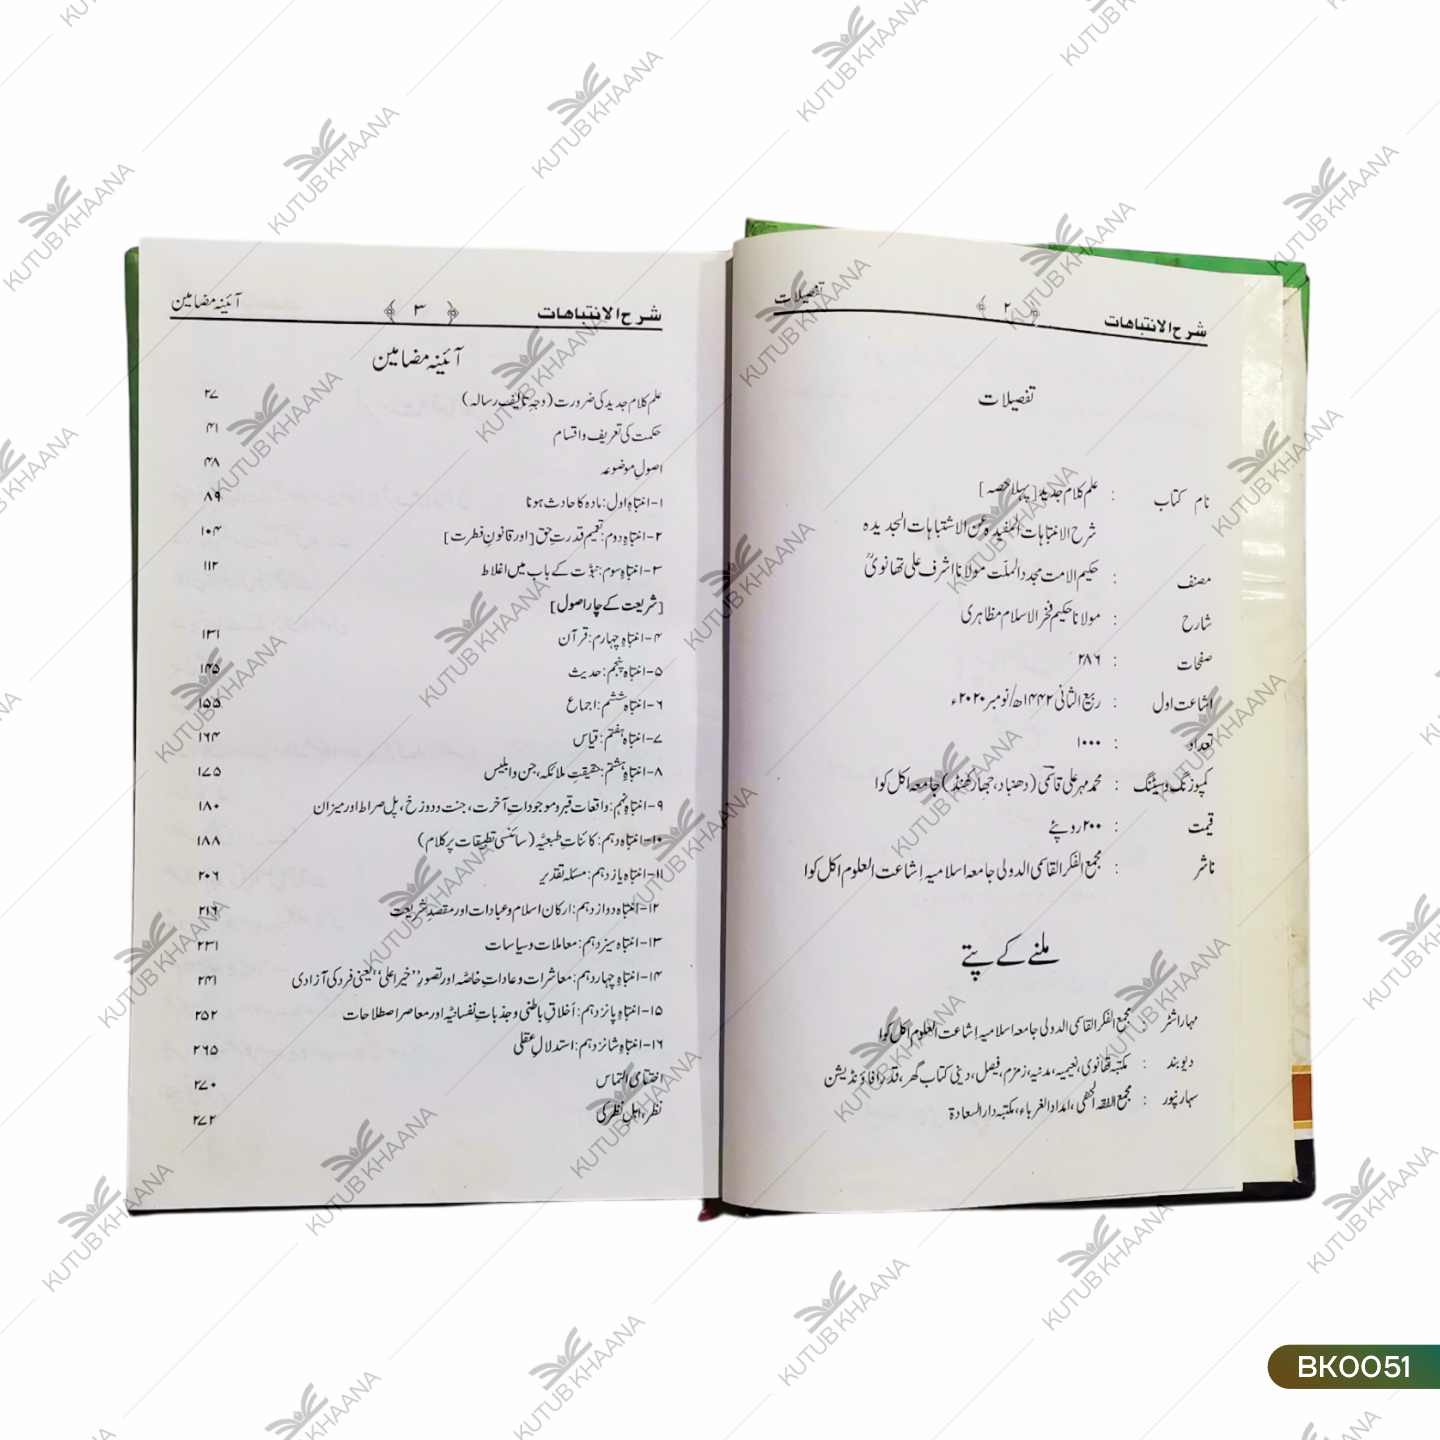 شرح الانتباہات ﴿۲﴾ تفصیلات
تفصیلات
نام کتاب : علم کلام جدید [پہلا حصہ]
شرح الانتباہات المفیدہ عن الاشتباہات الجدیدہ
مصنف : حکیم الامت مجدد الملت مولانا اشرف علی تھانویؒ
شارح : مولانا حکیم فخر الاسلام مظاہری
صفحات : ۲۸۶
اشاعت اول : ربیع الثانی ۱۴۴۲ھ/نومبر ۲۰۲۰ء
تعداد : ۱۰۰۰
کمپوزنگ و سیٹنگ : محمد مہر علی قاسمی (دھنباد، جھارکھنڈ) جامعہ اکل کوا
قیمت : ۲۰۰ روپئے
ناشر : مجمع الفکر القاسمی الدولی جامعہ اسلامیہ إشاعت العلوم اکل کوا
ملنے کے پتے
مہاراشٹر : مجمع الفکر القاسمی الدولی جامعہ اسلامیہ إشاعت العلوم اکل کوا
دیوبند : مکتبہ تھانوی، نعیمیہ، مدنیہ، زمزم، فیصل، دینی کتاب گھر، قدر افاؤنڈیشن
سہارنپور : مجمع الفقہ الحنفی، امداد الغرباء، مکتبہ دار السعادۃ
شرح الانتباہات ﴿۳﴾ آئینہ مضامین
آئینہ مضامین
علم کلام جدید کی ضرورت (وجہ تالیف رسالہ) ۲۷
حکمت کی تعریف و اقسام ۴۱
اصول موضوعہ ۴۸
۱-انتباہِ اول: مادہ کا حادث ہونا ۸۹
۲-انتباہِ دوم: تعمیم قدرتِ حق [اور قانونِ فطرت] ۱۰۴
۳-انتباہِ سوم: نبوّت کے باب میں اغلاط ۱۱۲
[شریعت کے چار اصول]
۴-انتباہِ چہارم: قرآن ۱۳۱
۵-انتباہ پنجم: حدیث ۱۴۵
۶-انتباہ ششم: اجماع ۱۵۵
۷-انتباہ ہفتم: قیاس ۱۶۴
۸-انتباہِ ہشتم: حقیقتِ ملائکہ، جن و ابلیس ۱۷۵
۹-انتباہِ نہم: واقعات قبر و موجوداتِ آخرت، جنت و دوزخ، پل صراط اور میزان ۱۸۰
۱۰-انتباہ دہم: کائناتِ طبعیّہ (سائنسی تطبیقات پر کلام) ۱۸۸
۱۱-انتباہ یازدہم: مسئلہ تقدیر ۲۰۶
۱۲-انتباہ دوازدہم: ارکان اسلام و عبادات اور مقصدِ شریعت ۲۱۶
۱۳-انتباہ سیزدہم: معاملات و سیاسات ۲۳۱
۱۴-انتباہِ چہاردہم: معاشرات و عاداتِ خاصّہ اور تصورِ ”خیرِ اعلیٰ“ یعنی فرد کی آزادی ۲۴۱
۱۵-انتباہِ پانزدہم: اخلاقِ باطنی و جذباتِ نفسانیّہ اور معاصر اصطلاحات ۲۵۲
۱۶-انتباہِ شانزدہم: استدلالِ عقلی ۲۶۵
اختتامی التماس ۲۷۰
نظر، اہل نظر کی ۲۷۲
KUTUB KHAANA
BK0051